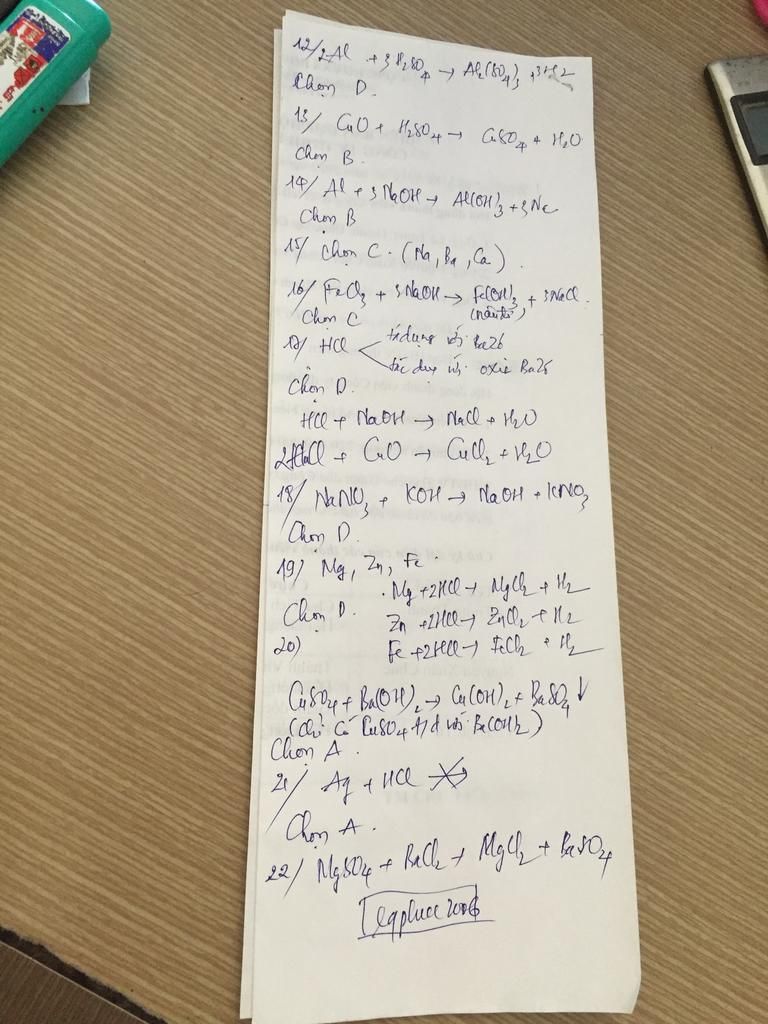 12/ 2Al + 3H2SO4 → Al2(SO4)3 + 3H2
Chọn D.
13/ CuO + H2SO4 → CuSO4 + H2O
Chọn B.
14/ Al + 3NaOH → Al(OH)3 + 3Na
Chọn B
15/ Chọn C. (Na, Ba, Ca).
16/ FeCl3 + 3NaOH → Fe(OH)3 + 3NaCl.
(nâu đỏ)
Chọn C
17/ HCl
tác dụng với Bazơ
tác dụng với oxit Bazơ
Chọn D.
HCl + NaOH → NaCl + H2O
2HCl + CuO → CuCl2 + H2O
18/ NaNO3 + KOH → NaOH + KNO3
Chọn D.
19/ Mg, Zn, Fe.
Mg + 2HCl → MgCl2 + H2
Chọn D. Zn + 2HCl → ZnCl2 + H2
20) Fe + 2HCl → FeCl2 + H2
CuSO4 + Ba(OH)2 → Cu(OH)2 + BaSO4↓
(chỉ có CuSO4 t/d với Ba(OH)2)
Chọn A.
21/ Ag + HCl
Chọn A.
22/ MgSO4 + BaCl2 → MgCl2 + BaSO4